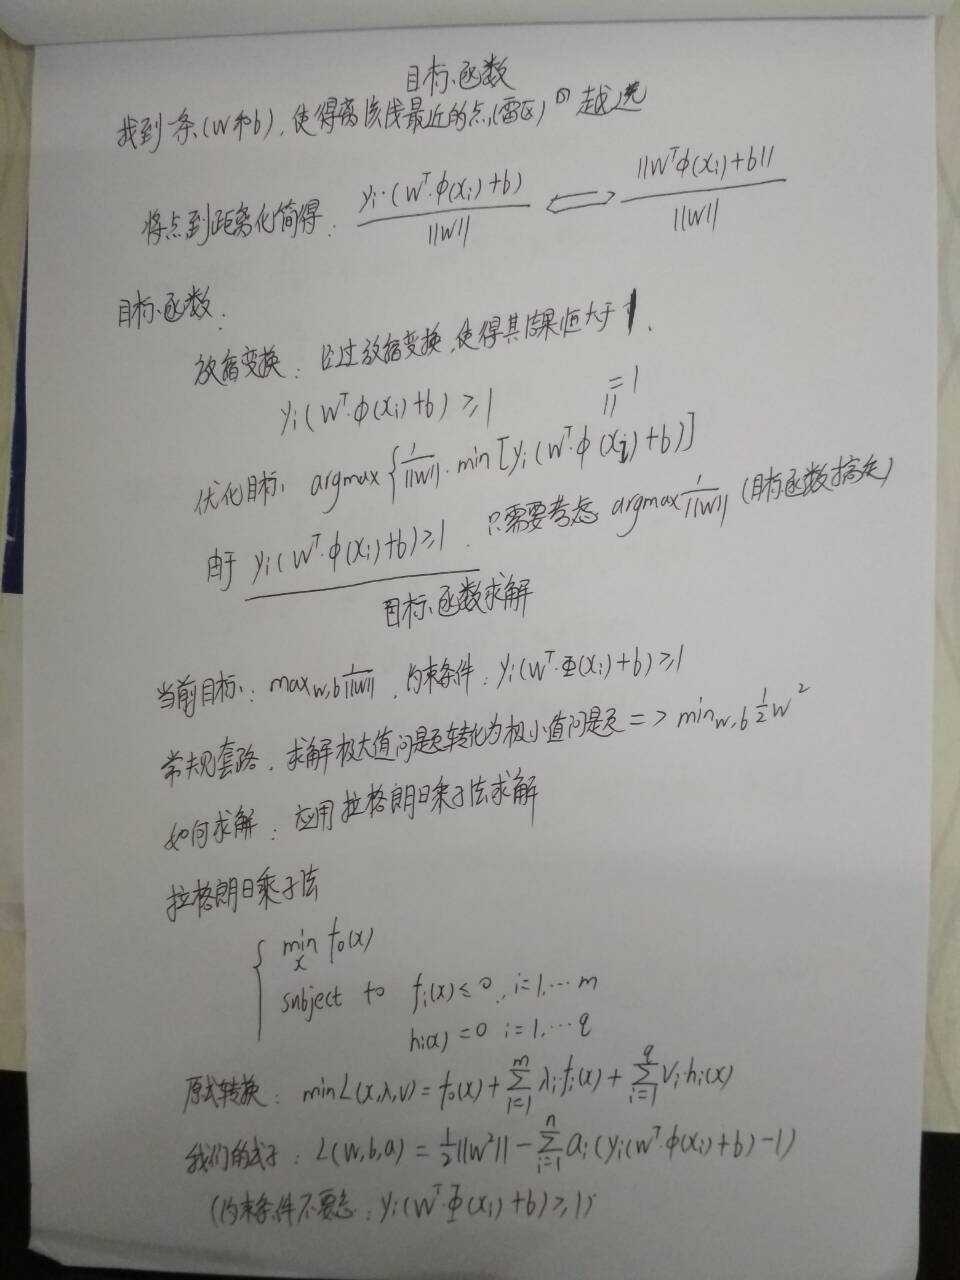 目标函数
找到一条(w和b),使得离该线最近的点(雷区)越远
将点到距离化简得: yi·(wᵀ·Φ(xi)+b)/||w|| <=> ||wᵀΦ(xi)+b||/||w||
目标函数:
放缩变换: 经过放缩变换,使得其结果恒大于1.
yi(wᵀ·Φ(xi)+b)≥1 =1
优化目标: argmax{1/||w||·min[yi(wᵀ·Φ(xi)+b)]
由于 yi(wᵀ·Φ(xi)+b)≥1. 只需要考虑 argmax 1/||w|| (目标函数搞定)
目标函数求解
当前目标: max w,b 1/||w||, 约束条件: yi(wᵀ·Φ(xi)+b)≥1
常规套路, 求解极大值问题转化为极小值问题 => min w,b 1/2 w²
如何求解: 应用拉格朗日乘子法求解
拉格朗日乘子法
{ min x f₀(x)
subject to fi(x)≤0, i=1,…m
hi(x)=0 i=1,…q
原式转换: min L(x,λ,v) = f₀(x) + Σᵐᵢ₌₁ λi fi(x) + Σ^qᵢ₌₁ Vi hi(x)
我们的式子: L(w,b,a) = 1/2||w²|| - Σⁿᵢ₌₁ ai(yi(wᵀ·Φ(xi)+b)-1)
(约束条件不要忘: yi(wᵀ·Φ(xi)+b)≥1)